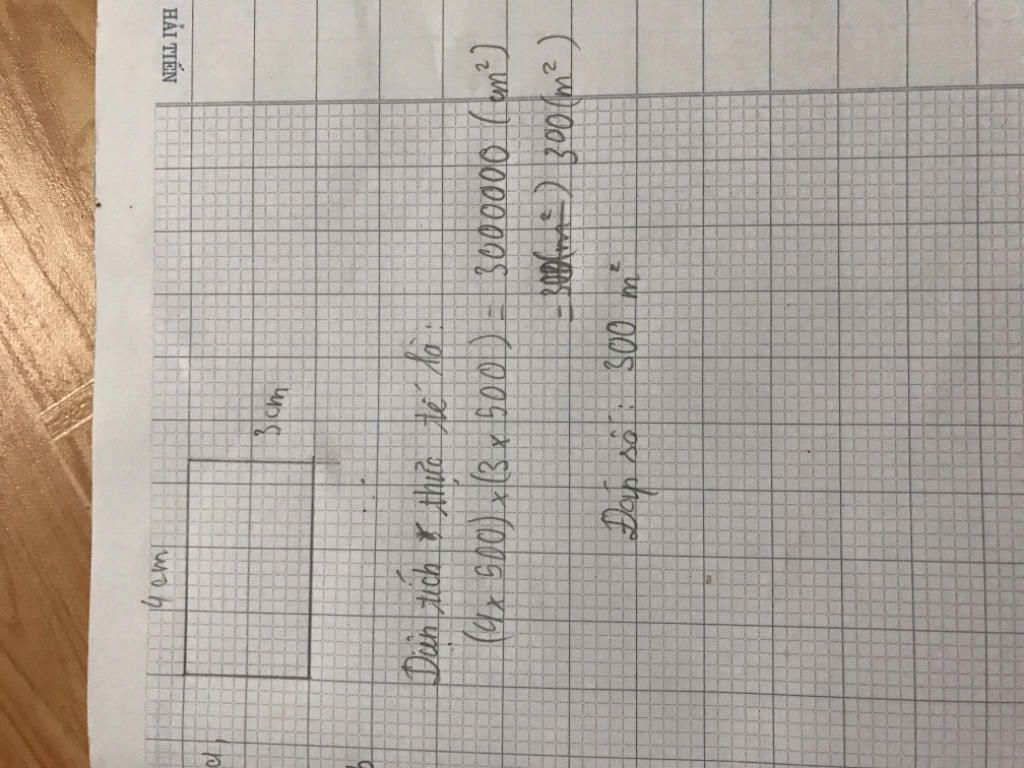 HẢI TIẾN
a,
4 cm
3 cm
b
Diện tích thửa tế là:
(4 x 500) x (3 x 500) = 3000000 (cm²)
= 300 (m²)
Đáp số: 300 m²